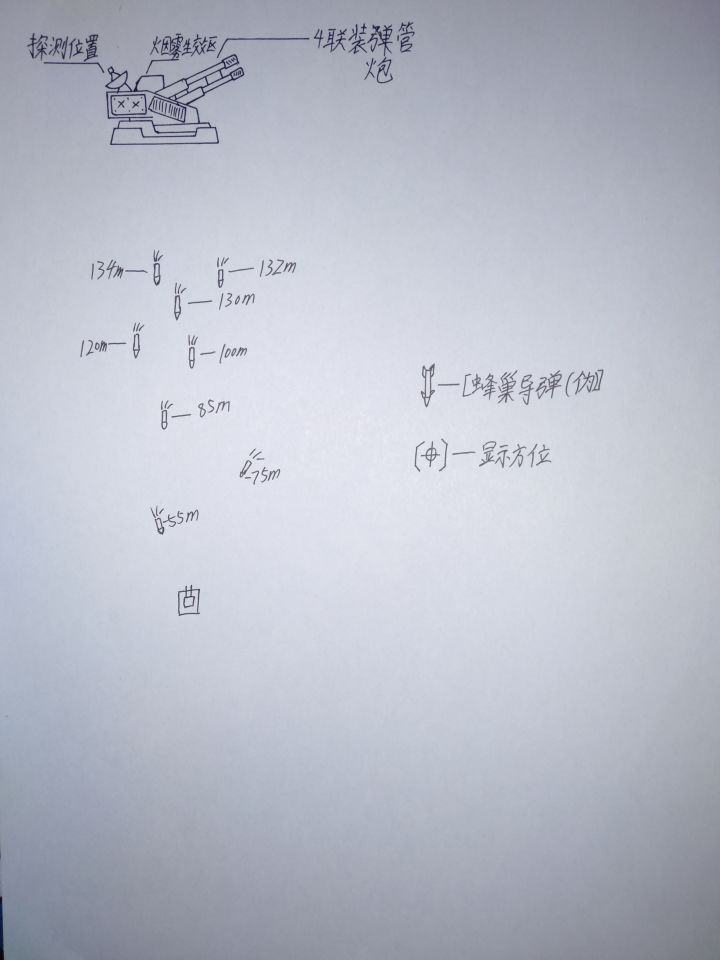 探测位置
火烟雾生效区
4联装弹管
炮
134m
132m
130m
120m
100m
85m
75m
55m
[蜂巢导弹(伪)]
显示方位